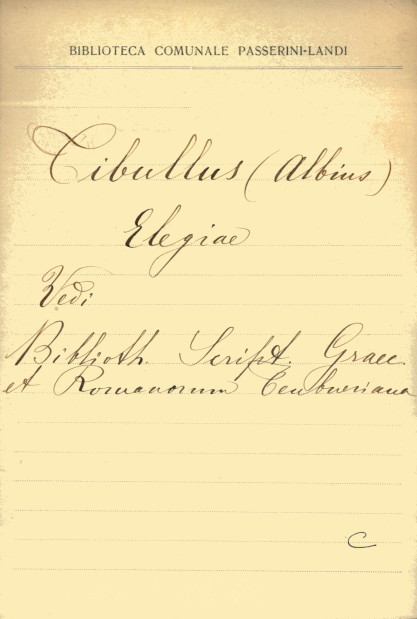 BIBLIOTECA COMUNALE PASSERINI-LANDI
Tibullus (Albius)
Elegiae
Vedi
Biblioth. Script. Graec.
et Romanorum Teubneriana
C